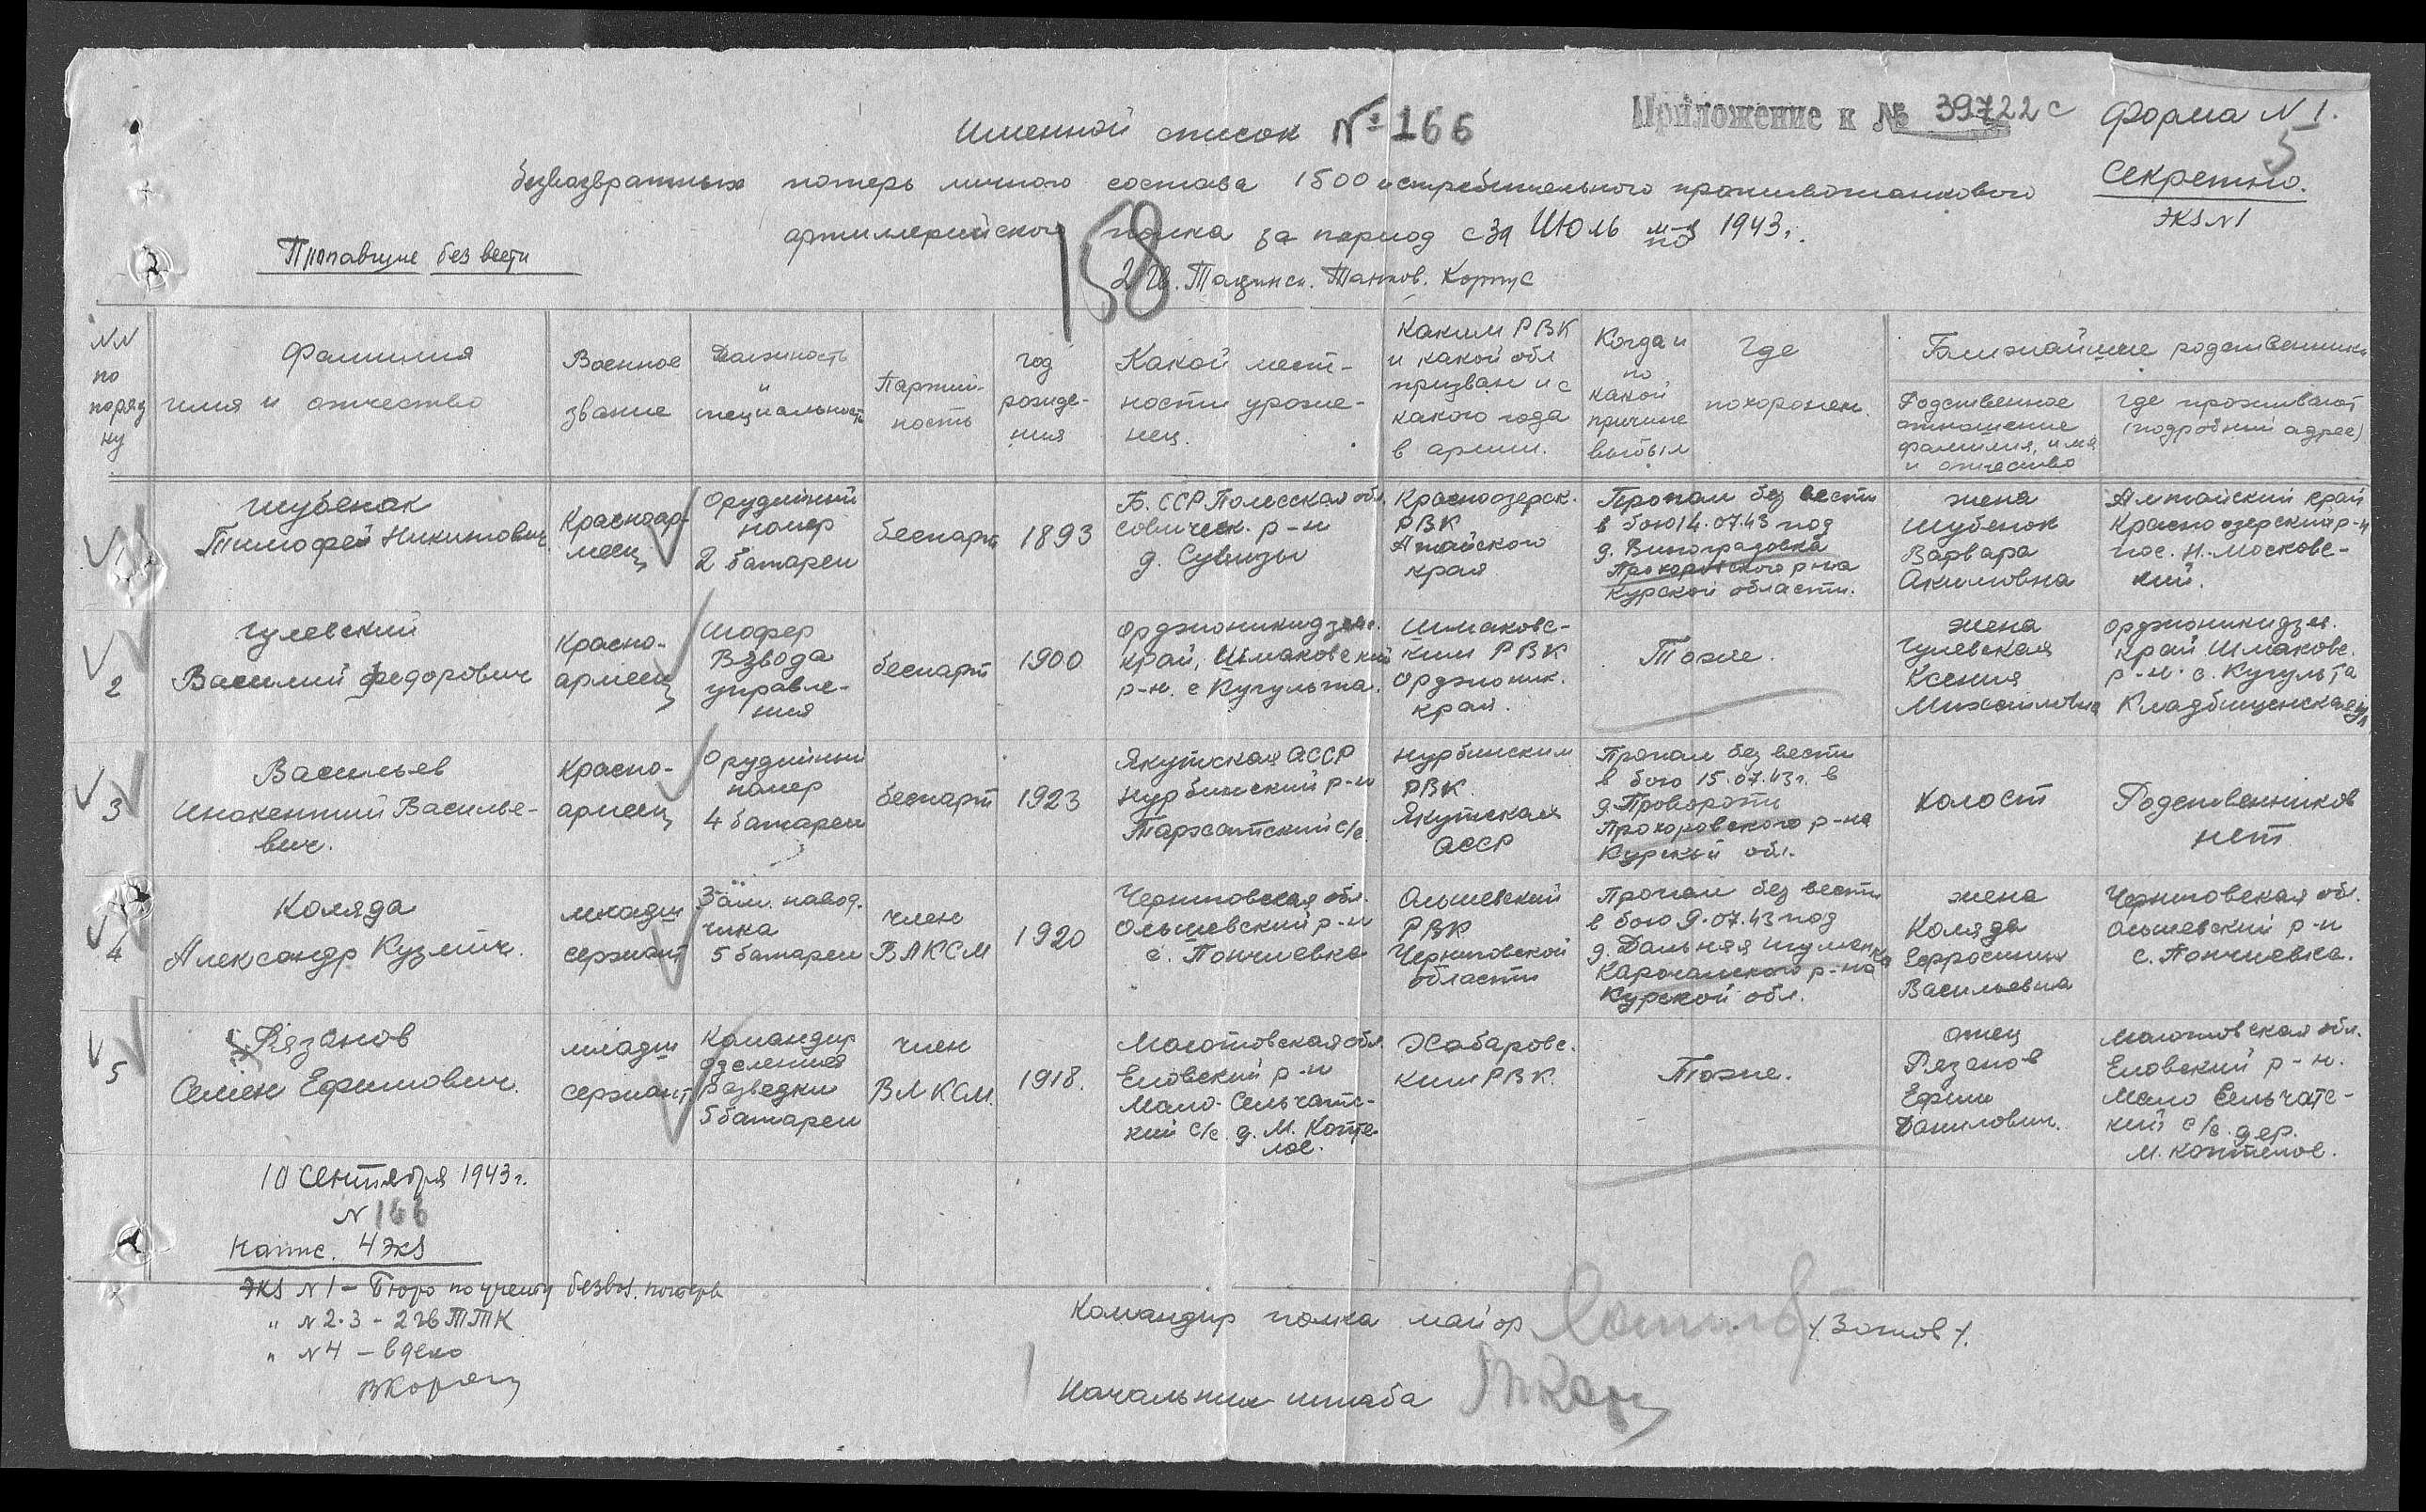 Приложение к № 39722с
Форма N 1.
5
Именной список № 166
Секретно.
безвозвратных потерь личного состава 1500 истребительного противотанкового
экз N1
артиллерийского полка за период с за Июль м-ц по 1943г.
Пропавшие без вести
158
2 Гв. Тацинск. Танков. Корпус
NN
по
поряд
ку
Фамилия
имя и отчество
Военное
звание
Должность
и
специальность
Партий-
ность
год
рожде-
ния
Какой мест-
ности уроже-
нец.
Каким РВК
и какой обл
призван и с
какого года
в армии.
Когда и
по
какой
причине
выбыл
Где
похоронен.
Ближайшие родственники
Родственное
отношение
фамилия, имя
и отчество
где проживают
(подробный адрес)
1
Шубенок
Тимофей Никитович
Красноар-
меец
Орудийный
номер
2 батареи
беспарт
1893
Б. ССР Полесская обл.
р-н
д.
Красноозерск.
РВК
Алтайского
края
Пропал без вести
в бою 14.07.43 под
д. Виноградовка
Прохоровского р-на
Курской области.
жена
Шубенок
Варвара
Акимовна
Алтайский край
Красноозерский р-н
пос. Н.-Московс-
кий.
2
Гулевский
Василий Федорович
Красно-
армеец
Шофер
Взвода
управле-
ния
беспарт
1900
Орджоникидзев.
край, Шпаковский
р-н. с Кугульта.
Шпаковс-
ким РВК
Орджоник.
край.
Тоже.
жена
Гулевская
Ксения
Михайловна
Орджоникидзев.
край Шпаковс.
р-н. с. Кугульта
Кладбищенская ул
3
Васильев
Инокентий Василье-
вич.
Красно-
армеец
Орудийный
номер
4 батареи
беспарт
1923
Якутская АССР
Нурбинский р-н
с/с
Нурбинским
РВК.
Якутская
АССР
Пропал без вести
в бою 15.07.43г. в
д. Провороть
Прохоровского р-на
Курской обл.
Холост
Родственников
нет
4
Коляда
Александр Кузмич.
младш
сержант
Зам. навод-
чика
5 батареи
член
ВЛКСМ
1920
Черниговская обл.
Олышевский р-н
с. Пончиевка
Олышевский
РВК
Черниговской
области
Пропал без вести
в бою 9.07.43 под
д. Дальняя Игуменка
Карочанского р-на
Курской обл.
жена
Коляда
Ефросиния
Васильевна
Черниговская обл.
Олышевский р-н
с. Пончиевка.
5
Рязанов
Семен Ефимович.
младш
сержант
Командир
отделения
разведки
5 батареи
член
ВЛКСМ.
1918.
Молотовская обл.
Еловский р-н
Мало-Сельчатс-
кий с/с. д. М. Копте-
лов.
Хабаровс.
ким РВК.
Тоже.
отец
Рязанов
Ефим
Данилович.
Молотовская обл.
Еловский р-н.
Мало Сельчатс-
кий с/с. дер.
М. Коптелов.
10 Сентября 1943г.
N 166
Напис. 4 экз
экз N 1 - Бюро по учету безвоз. потерь
" N 2-3 - 2 гв ТТК
" N 4 - в дело
Командир полка майор /Зотов/.
Начальник штаба